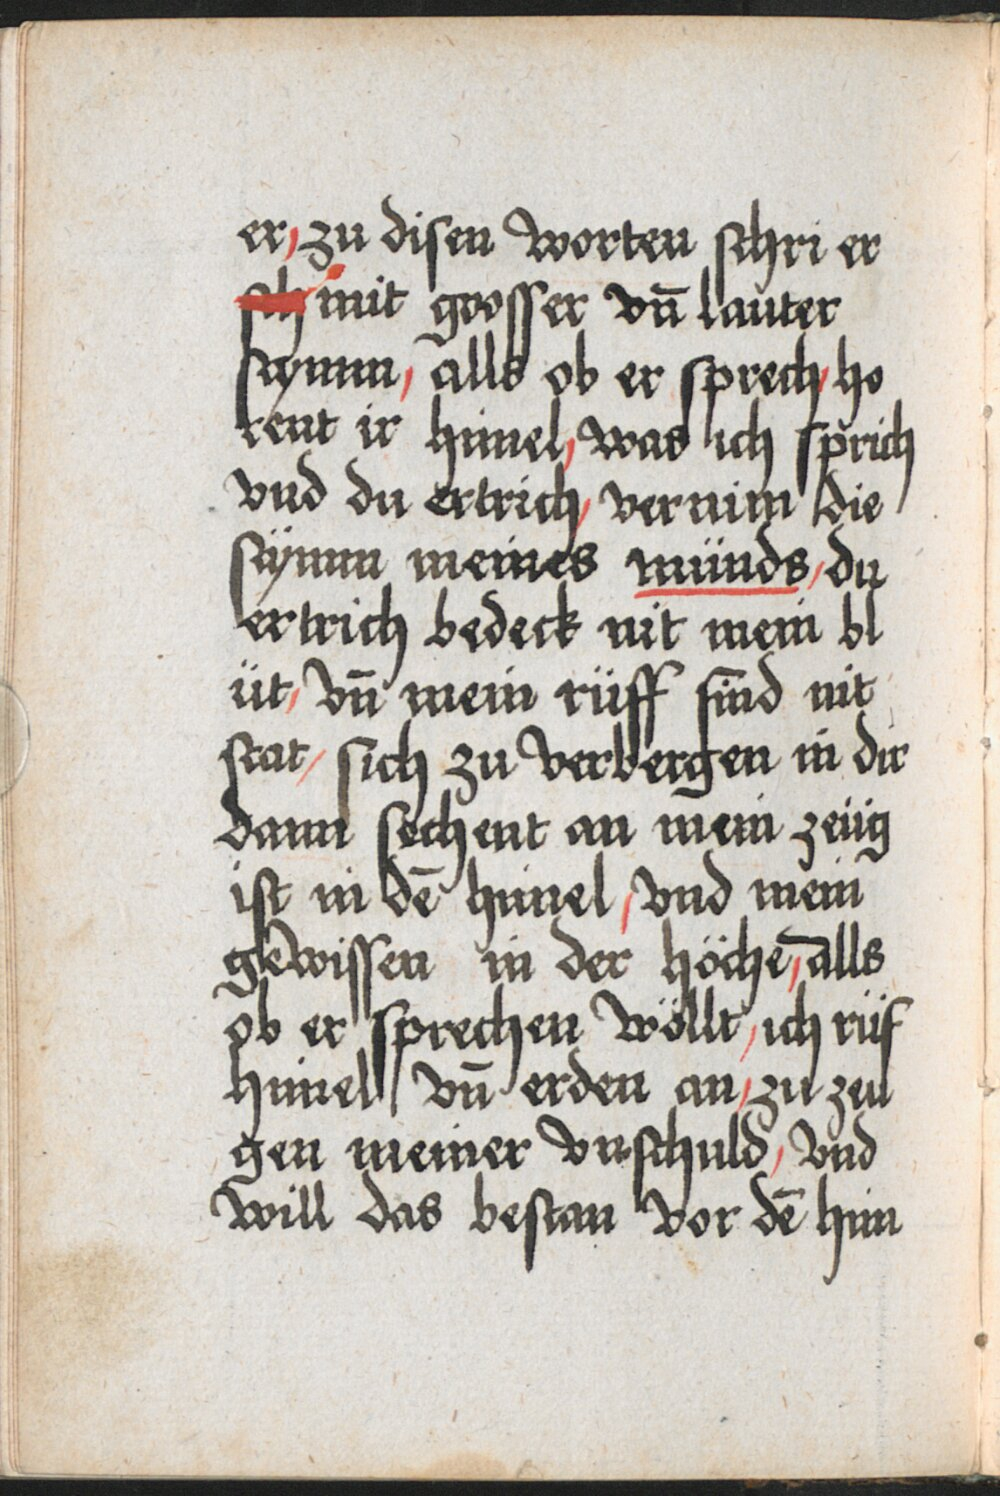 er, zu disen worten schri er
mit grosser vn̄ lauter
stymm, alls ob er sprech, ho
rent ir himel, was ich sprich
vnd du ertrich, vernim die
stÿmm meines münds, du
ertrich bedeck nit mein bl
üt, vn̄ mein rüff find nit
stat, sich zu verbergen in dir
dann sechent an mein zeüg
ist in dē himel, vnd mein
gewissen in der höche, alls
ob er sprechen wöllt, ich rüf
himel vn̄ erden an, zu zeu
gen meiner vnschuld, vnd
will das bestan vor dē him